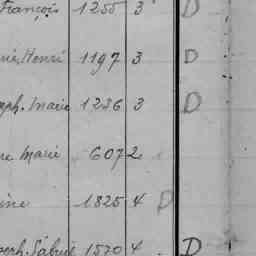 François 1255 3 D
Henri 1197 3 D
ph. Marie 1236 3 D
Marie 607 2
ine 1825 4 D
1570 4 D